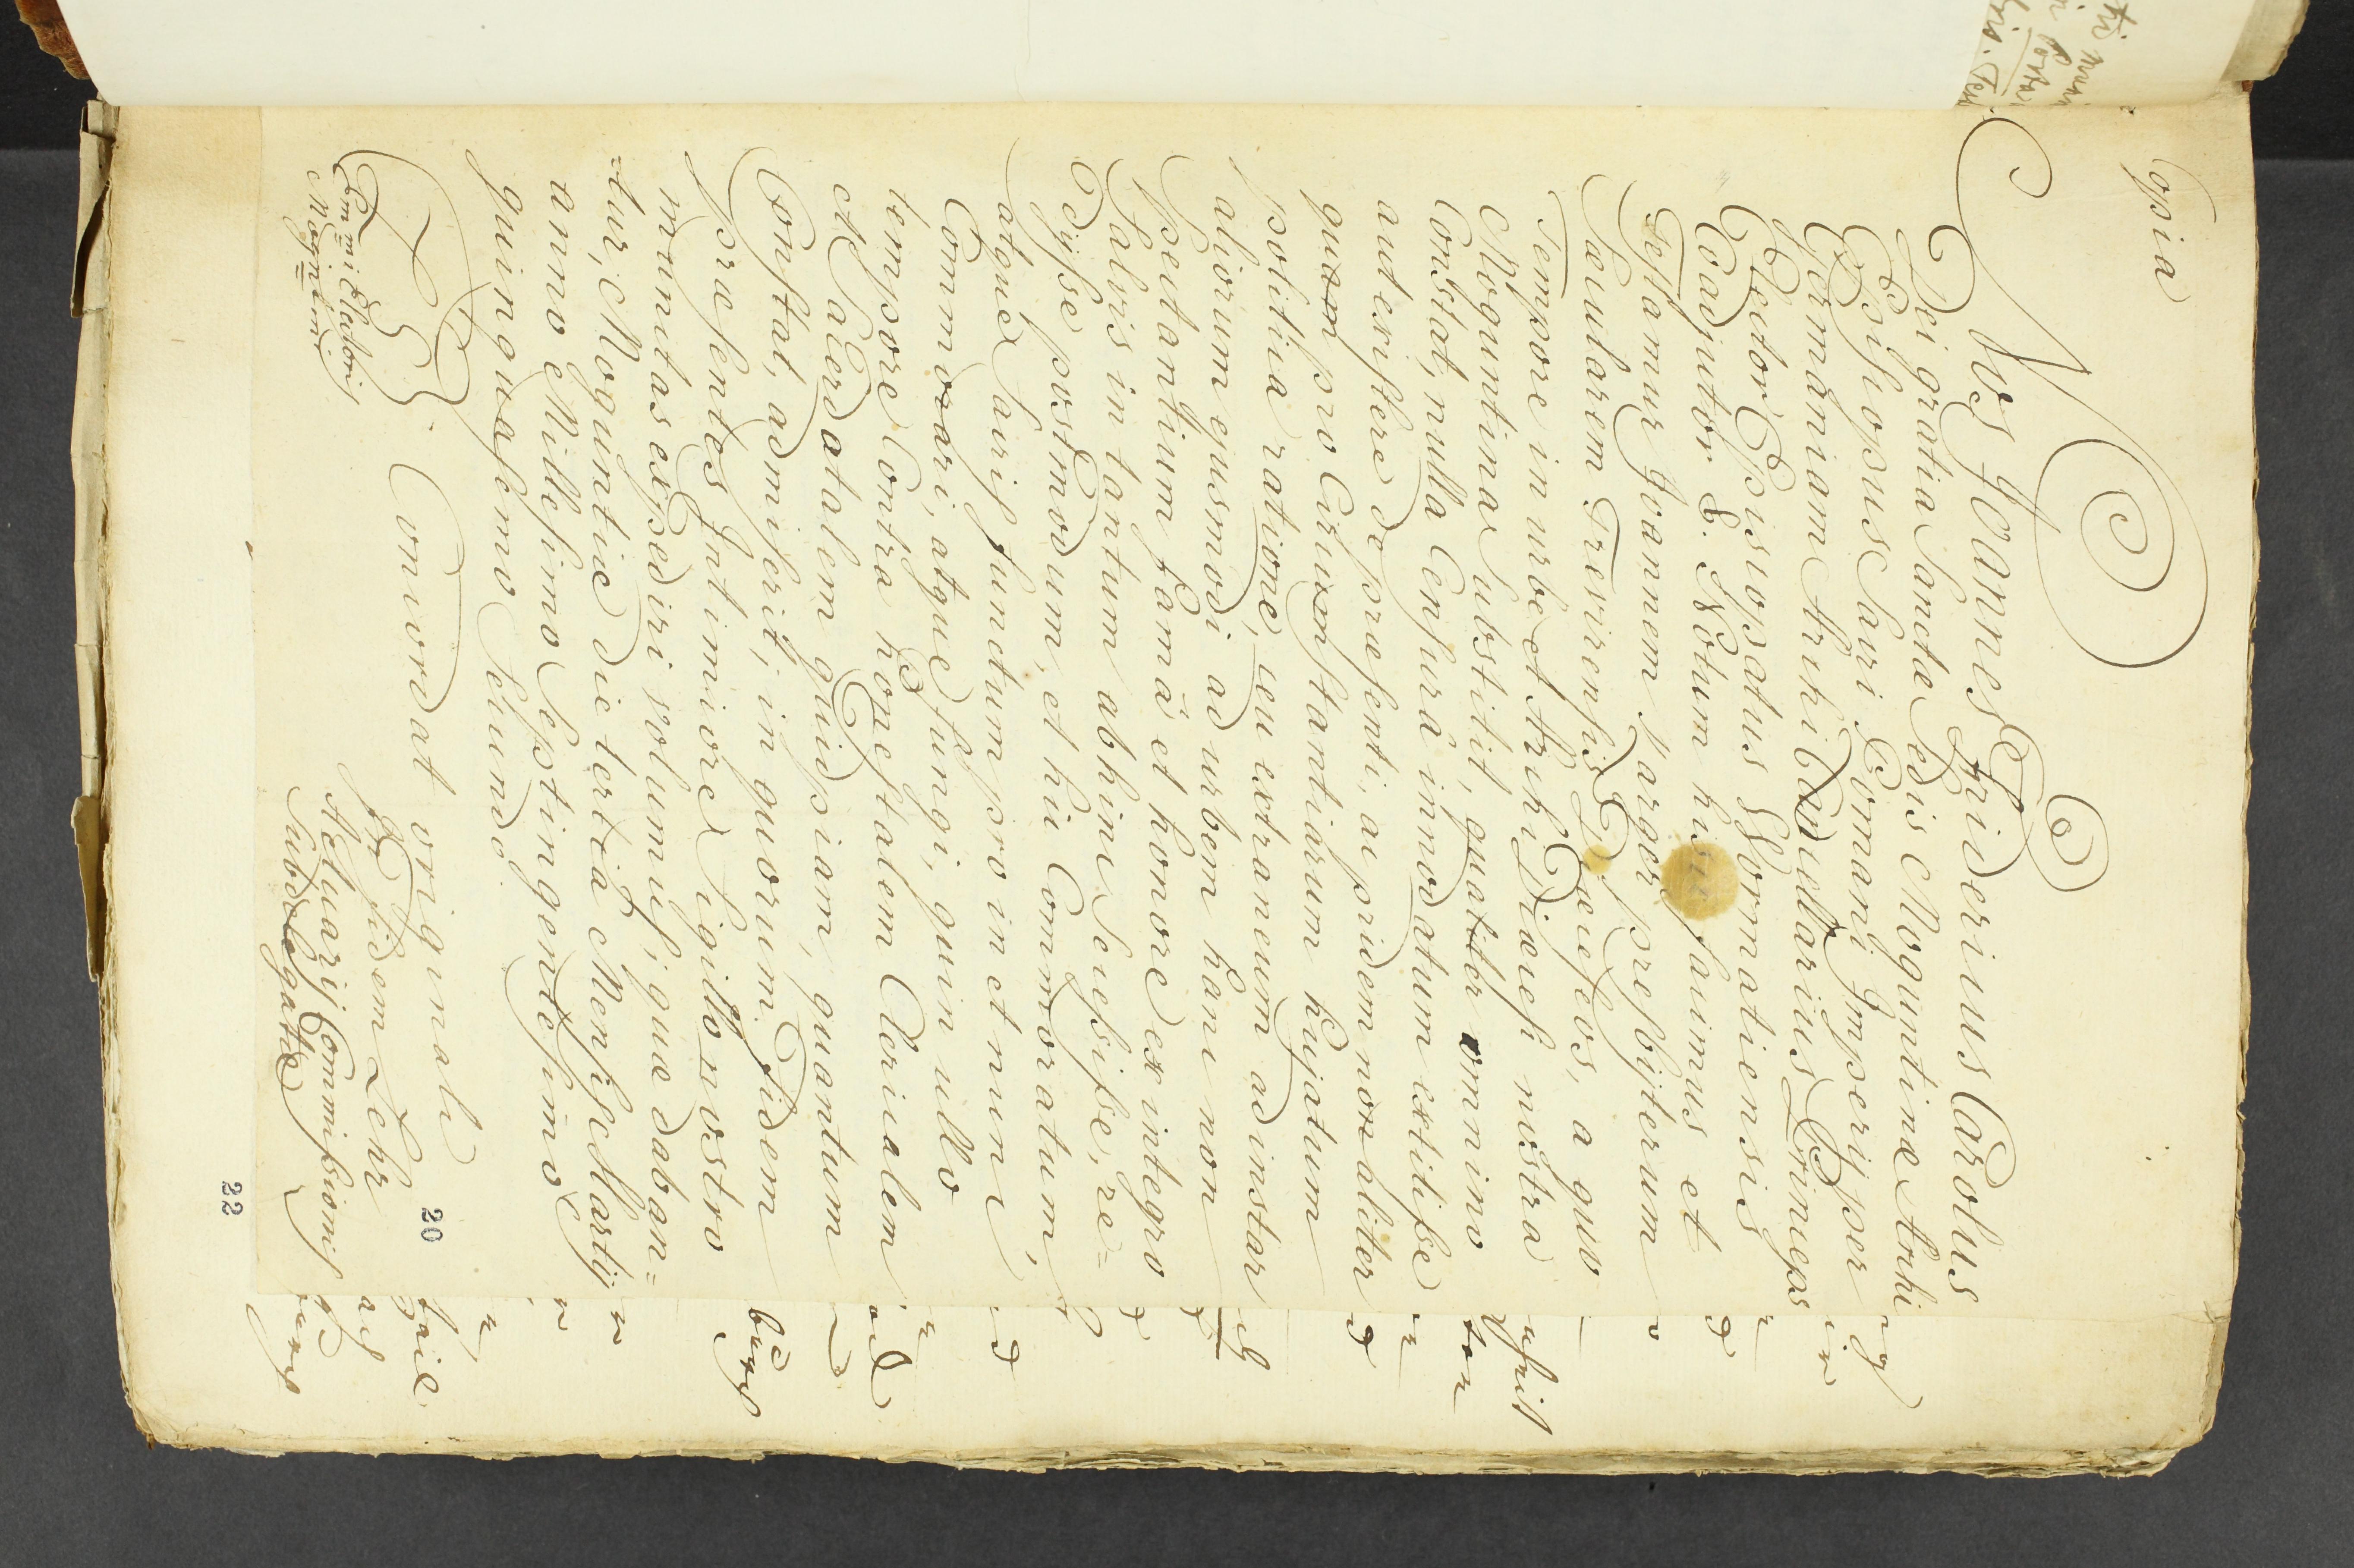 Copia
Nos Joannes Fridericus Carolus
Dei gratia Sanctæ Sedis Moguntinæ Archi
Episcopus Sacri Romani Imperij per
Germaniam Archi Cancellarius Princeps
Elector Episcopatus Wormatiensis
Coadjutor &. Notum hisce facimus et
Testamur Joannem Sarger presbijterum
Sæcularem Trevirensis Diæceseos, a quo
Tempore in urbe et Archi Diæcesi nostra
Moguntina substitit, qualiter omnino
Constat, nulla Censurâ innodatum extitisse
aut existere de præsenti, ac pridem non aliter
quam pro Circumstantiarum hujatum
politiæ ratione, ceu extraneum ad instar
aliorum ejusmodi ad urbem hanc non
spectantium famâ et honore ex integro
salvis in tantum abhinc secessisse, re=
dijsse postmodum, et hic Commoratum,
atque sacris functum pro in et nunc
Commorari, atque fungi, quin ullo
tempore Contra honestatem Clericalem
et Sacerdotalem quidpiam, quantum
Constat, admiserit; in quorum fidem
præsentes sub intimiore sigillo nostro
munitas expediri volumus, quæ daban=
tur, Moguntiæ die tertiâ Mensis Martij
anno Millesimo Septingentesimo
quinquagesimo secundo.
(L.S.)
Em=mi Electoris
Moguntini
Concordat originali
In fidem Lehr
Actuarij Commissionis
Subdelegatæ
20
22